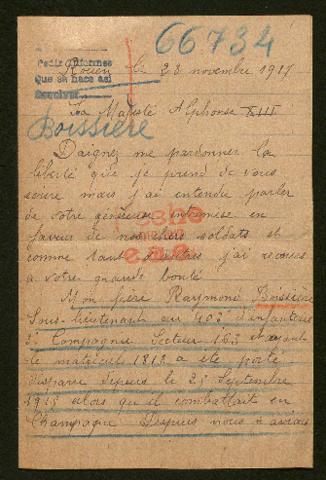 66734
Pedir informes
Que se hace así
Rouen le 28 novembre 1917
Sa Majesté Alphonse XIII
Boissière
Daignez me pardonner la
liberté que je prend de vous
écrire mais j'ai entendu parler
de votre généreuse entremise en
faveur de nos chers soldats et
comme tant d'autres j'ai recours
a votre grande bonté
Mon frère Raymond Boissière
Sous-lieutenant au 403 d'infanterie
5e Compagnie Secteur 163 et ayant
le matricule 1813 a été porté
disparu depuis le 25 Septembre
1915 alors qu'il combattait en
Champagne Depuis nous n'avions